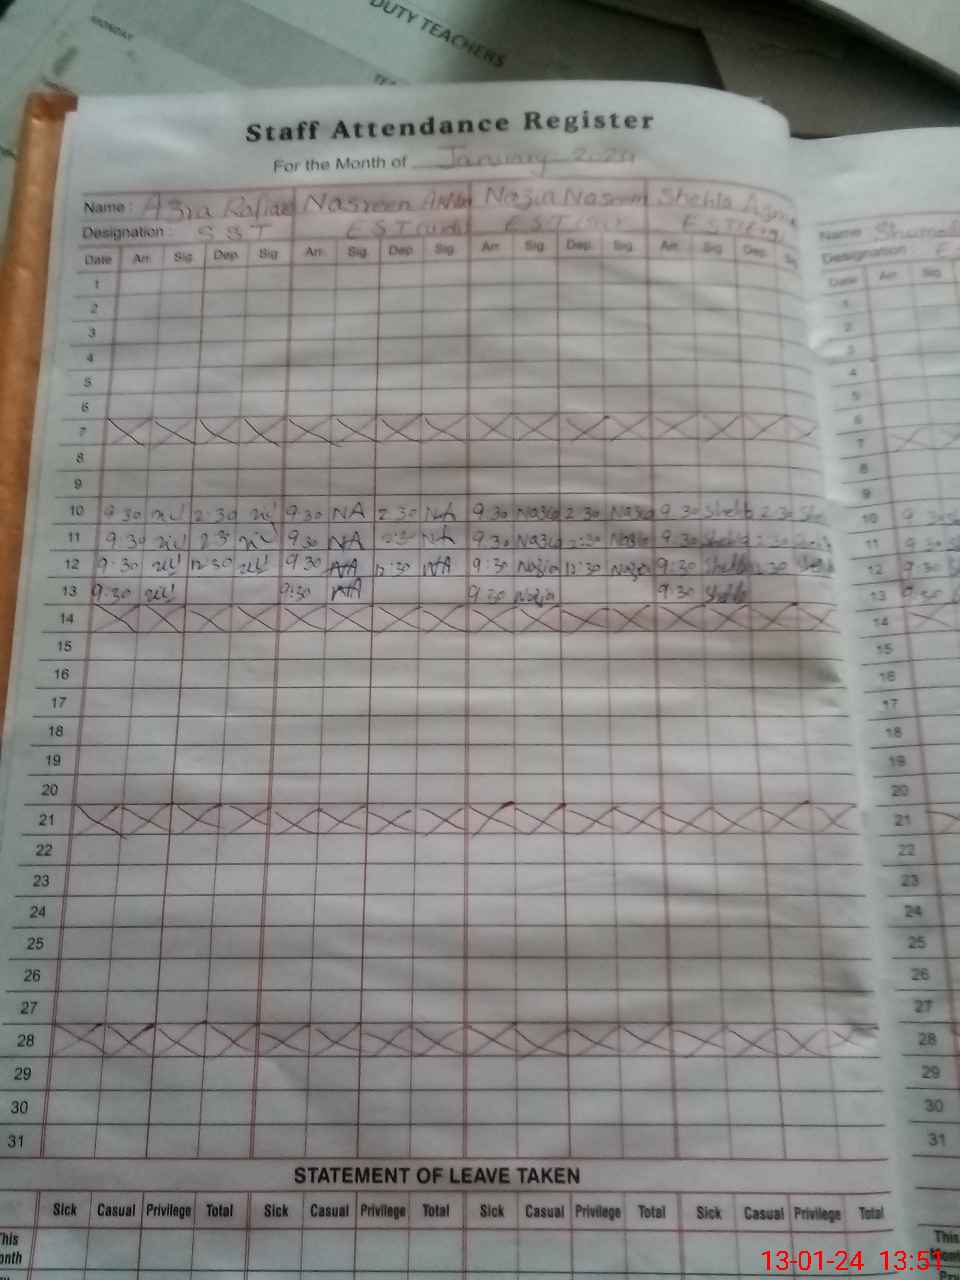 DUTY TEACHERS
MONDAY
Staff Attendance Register
For the Month of January 2024
Name: Azra Rafiae Nasreen Akhter Nazia Nasreem Shehla
Designation: SST EST EST EST
Date Arr. Sig. Dep. Sig. Arr. Sig. Dep. Sig. Arr. Sig. Dep. Sig. Arr. Sig. Dep. Sig
1
2
3
4
5
6
7
8
9
10 9:30 2:30 9:30 NA 2:30 NA 9:30 Nazia 2:30 Nazia 9:30 Shehla 2:30 She
11 9:30 2:3 9:30 NA 2:3 NA 9:30 Nazia 2:30 Nazia 9:30 Shehla 2:30
12 9:30 12:30 9:30 NA 12:30 NA 9:30 Nazia 12:30 Nazia 9:30 Shehla 12:30 Sheh
13 9:30 9:30 NA 9:30 Nazia 9:30 Shehla
14
15
16
17
18
19
20
21
22
23
24
25
26
27
28
29
30
31
STATEMENT OF LEAVE TAKEN
Sick Casual Privilege Total Sick Casual Privilege Total Sick Casual Privilege Total Sick Casual Privilege Total
This
onth
Name
Designation
Date Arr. Sig.
1
2
3
4
5
6
7
8
9
10 9:30
11 9:30
12 9:30
13 9:30
14
15
16
17
18
19
20
21
22
23
24
25
26
27
28
29
30
31
This
13-01-24 13:51